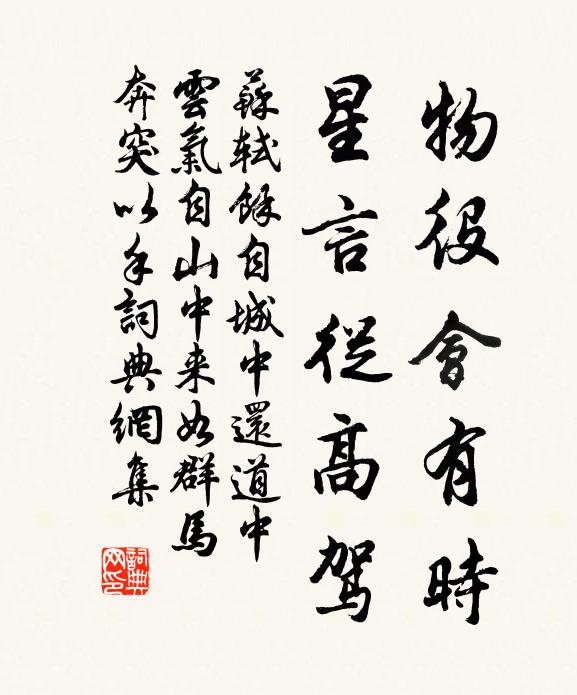 物役會有時
星言從高駕
蘇軾餘自城中還道中
雲氣自山中来如群馬
奔突以手詞典網集
詞典網印